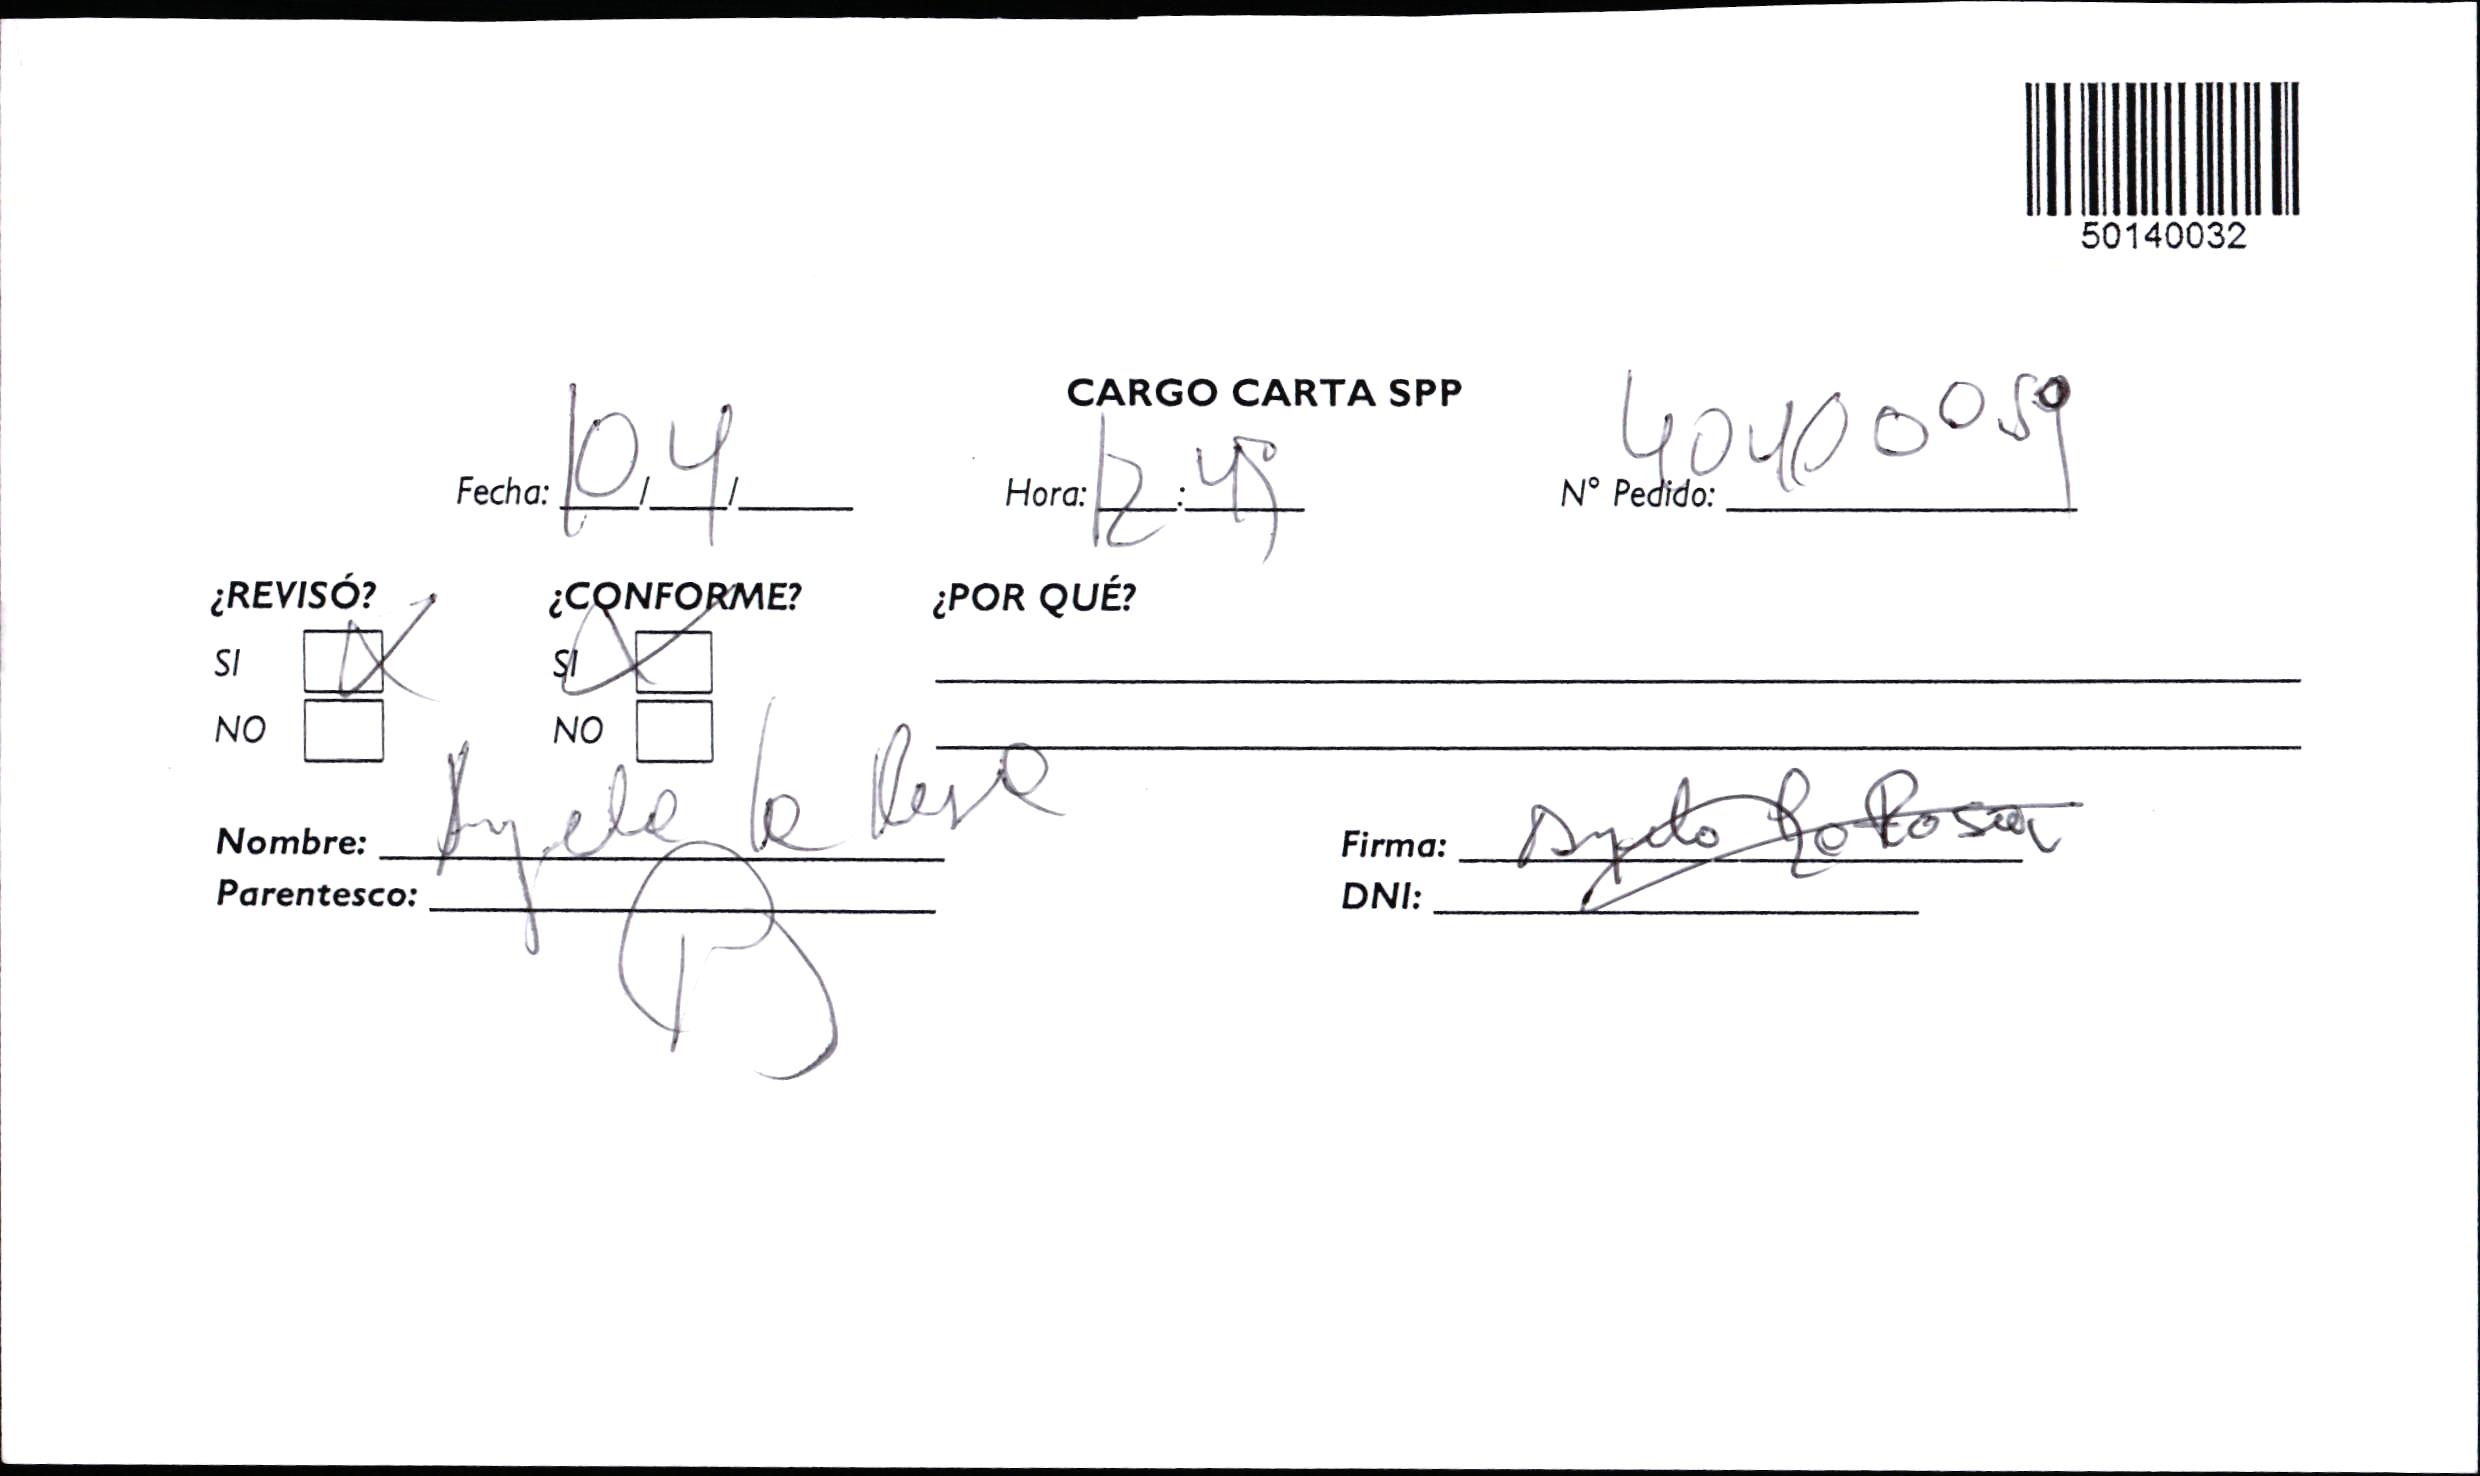 50140032
CARGO CARTA SPP
Fecha: 10/4/ Hora: 12:45 N° Pedido: 40400059
¿REVISÓ? ¿CONFORME? ¿POR QUÉ?
SI SI
NO NO
Nombre: Angela la Rosa Firma: Angela La Rosa
Parentesco: DNI: